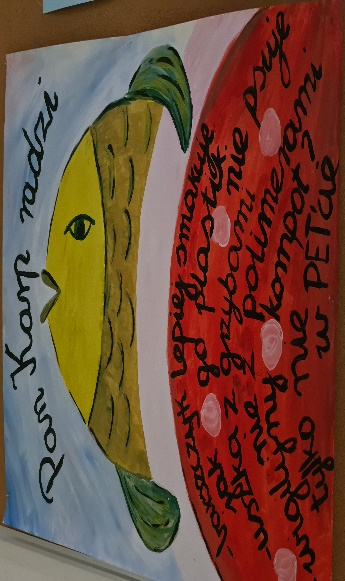 Pan Karp radzi
-barszczyk lepiej smakuje
jak go plastik nie psuje
-uszka z grzybami
nie z polimerami
-wigilijny kompot?
tylko nie w PETcie